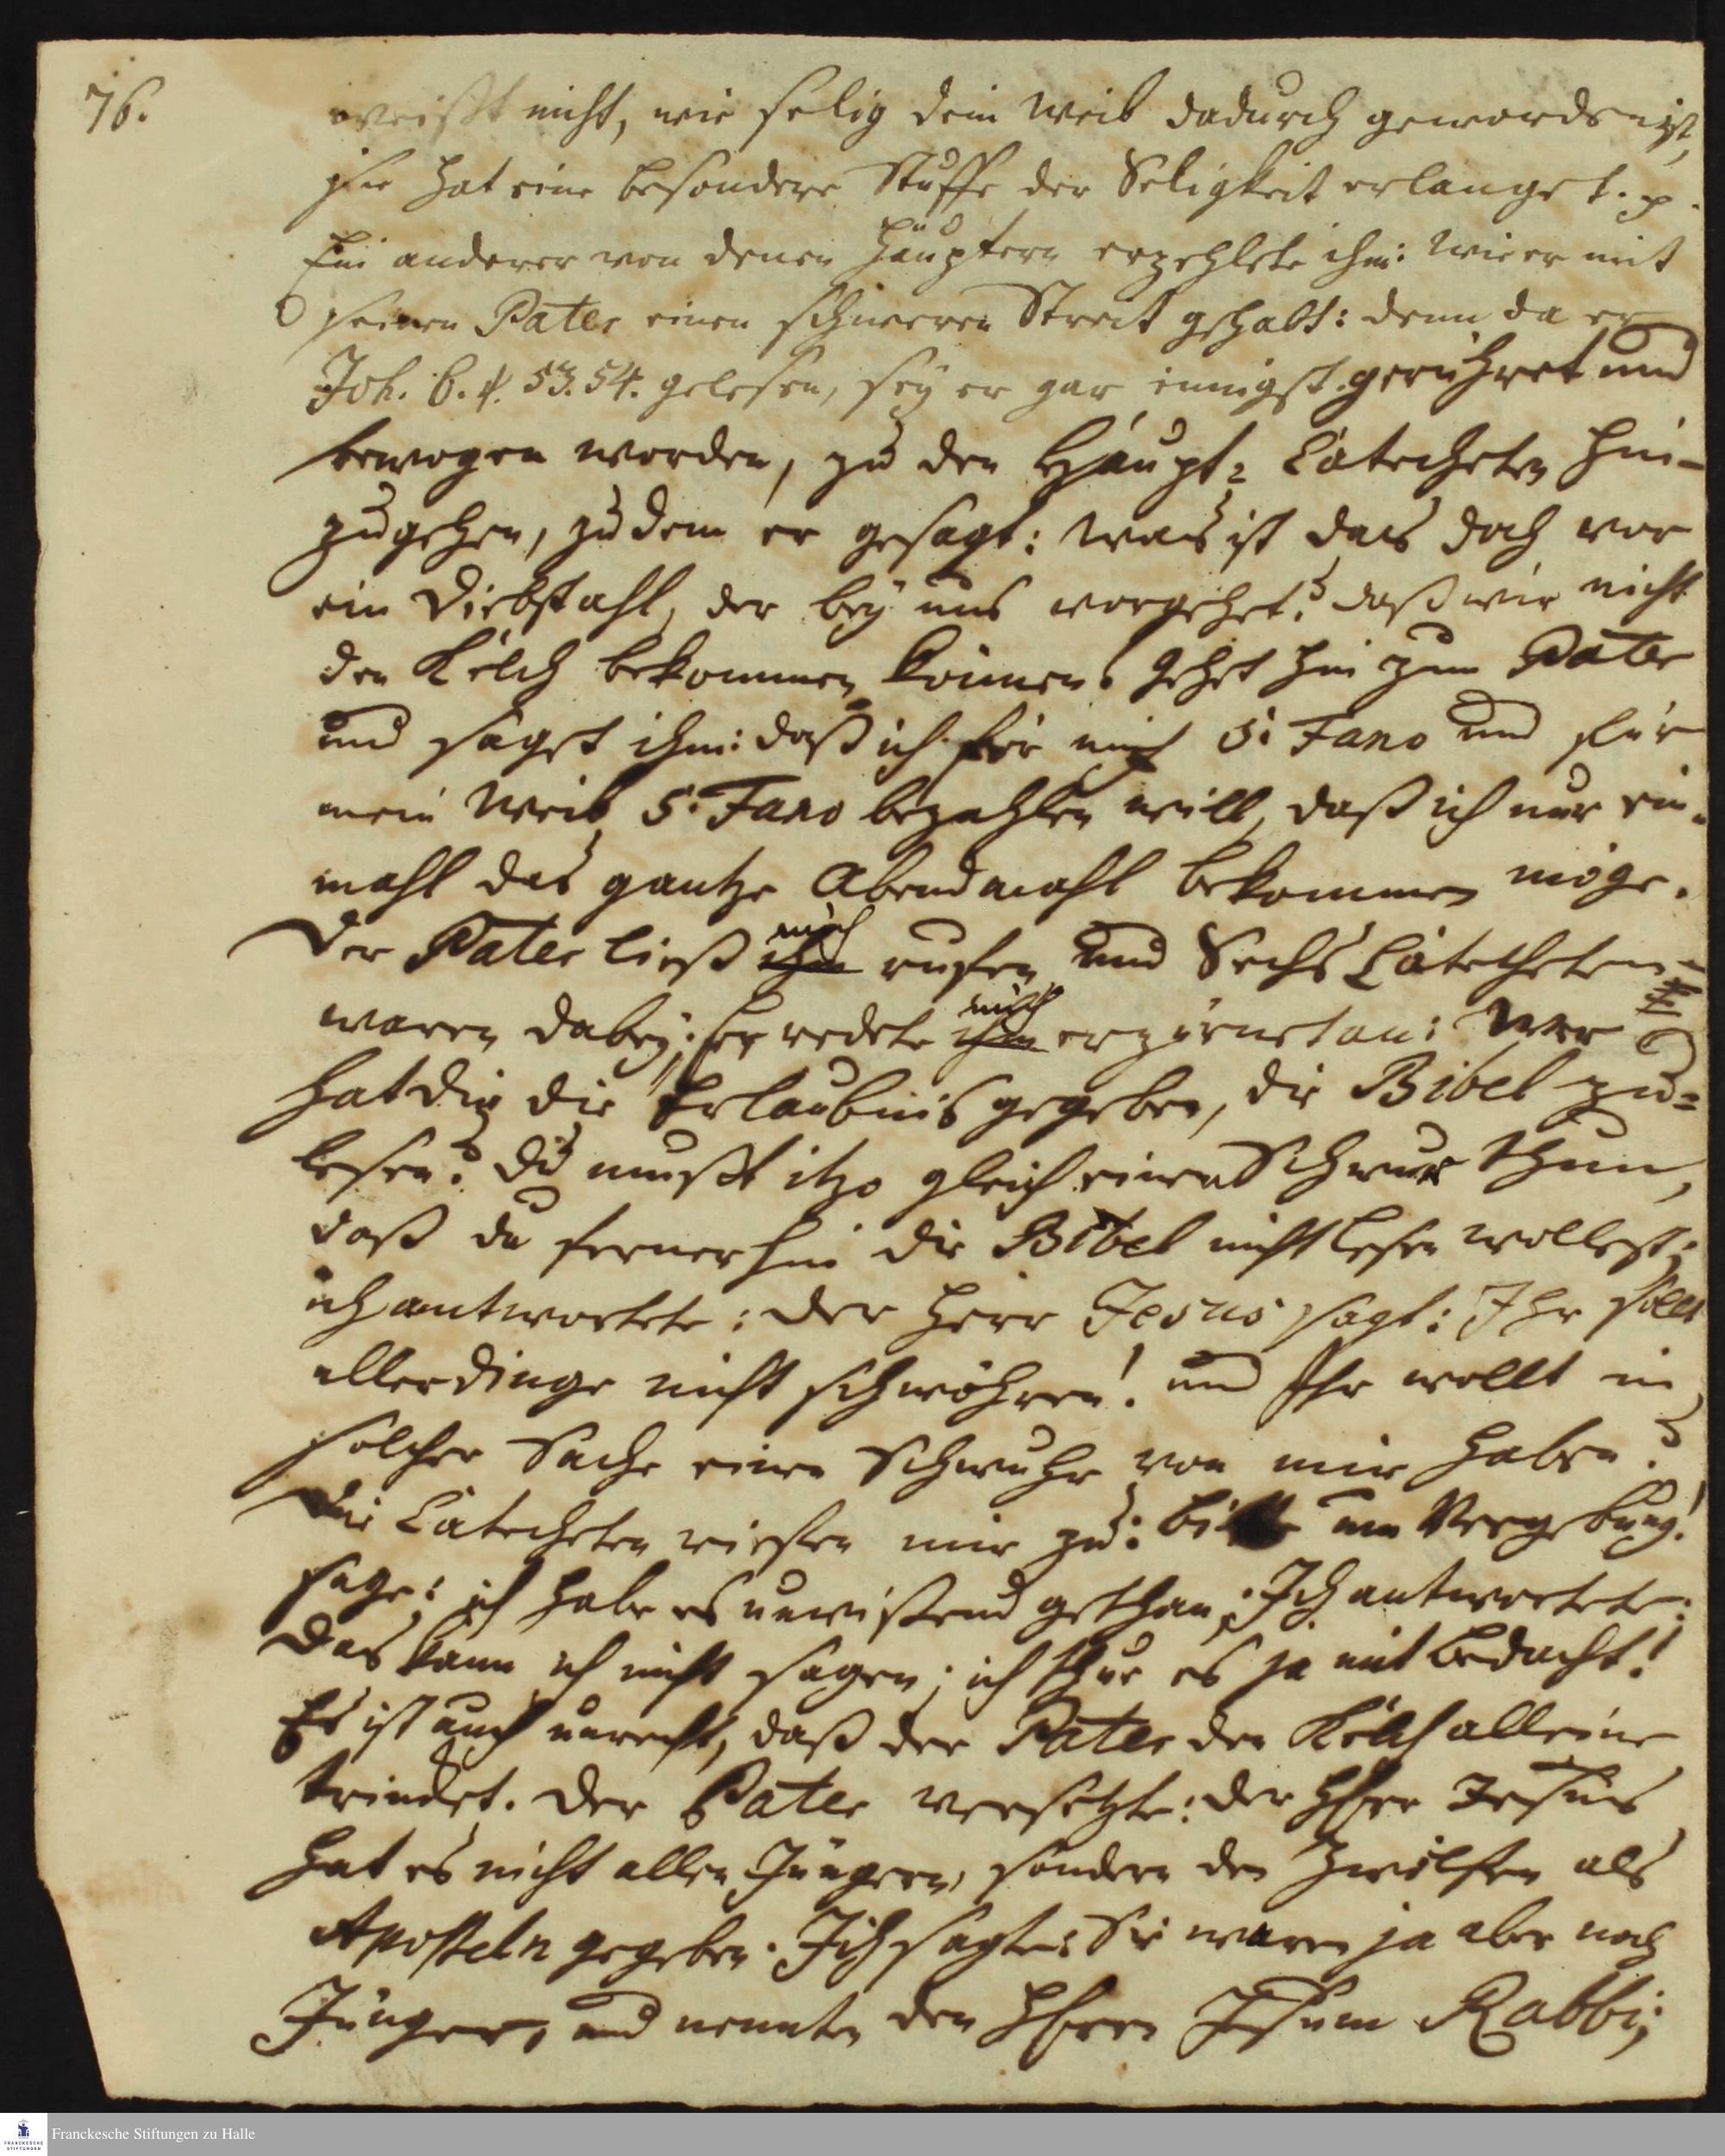 76.
weißt nicht, wie selig dein Weib dadurch geworden ist,
sie hat eine besondere Stuffe der Seligkeit erlanget. p.
Ein anderer von denen Häuptern erzehlete ihm: wie er mit
seinen Pater einen schweren Streit gehabt: denn da er
Joh. 6. v. 53. 54. gelesen, sey er gar innigst gerühret und
bewogen worden, zu den Haupt-Catecheten hin-
zugehen, zu dem er gesagt: was ist das doch vor
ein Diebstahl, der bey uns vorgehet? daß wir nicht
den Kelch bekommen können. Gehet hin zum Pater
und saget ihm: daß ich für mich 5. Fano und für
mein Weib 5. Fano bezahlen will, daß ich nur ein-
mahl das gantze Abendmahl bekommen möge.
Der Pater ließ ihn mich rufen und Sechs Catecheten
waren dabey; Er redete ihn mich erzürnet an: Wer
hat dir die Erlaubnis gegeben, die Bibel zu-
lesen? du mußt itzo gleich einen Schwur thun,
daß du fernerhin die Bibel nicht lesen wollest;
ich antwortete: der Herr Jesus sagt: Ihr sollt
allerdinge nicht schwöhren! und Ihr wollt in
solcher Sache einen Schwuhr von mir haben?
Die Catecheten riefen mir zu: bitte um Vergebung!
sage: ich habe es unwißend gethan; Ich antwortete:
das kann ich nicht sagen; ich thue es ja mit Bedacht!
Es ist auch unrecht, daß der Pater den Kelch alleine
trincket. Der Pater versetzte: der HErr Jesus
hat es nicht allen Jüngern, sondern den Zwölfen als
Aposteln gegeben. Ich sagte: Sie waren ja aber noch
Jünger, und nennten den HErrn Jesum Rabbi;
Franckesche Stiftungen zu Halle